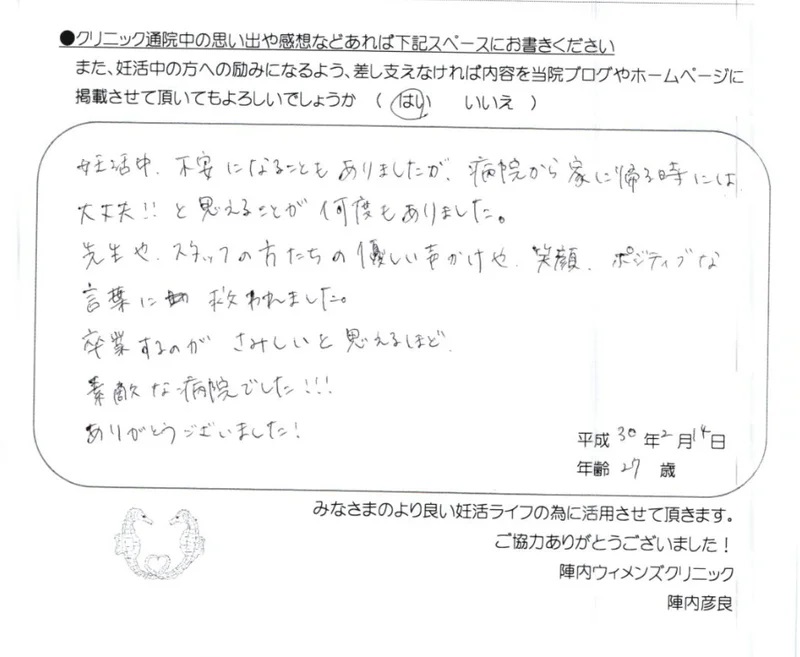 ●クリニック通院中の思い出や感想などあれば下記スペースにお書きください
また、妊活中の方への励みになるよう、差し支えなければ内容を当院ブログやホームページに
掲載させて頂いてもよろしいでしょうか ( はい いいえ )
妊活中、不安になることもありましたが、病院から家に帰る時には、
大丈夫!! と思えることが何度もありました。
先生や、スタッフの方たちの優しい声かけや、笑顔、ポジティブな
言葉に 救われました。
卒業するのが さみしいと思えるほど、
素敵な病院でした!!!
ありがとうございました!
平成 30 年 2 月 14 日
年齢 27 歳
みなさまのより良い妊活ライフの為に活用させて頂きます。
ご協力ありがとうございました!
陣内ウィメンズクリニック
陣内彦良